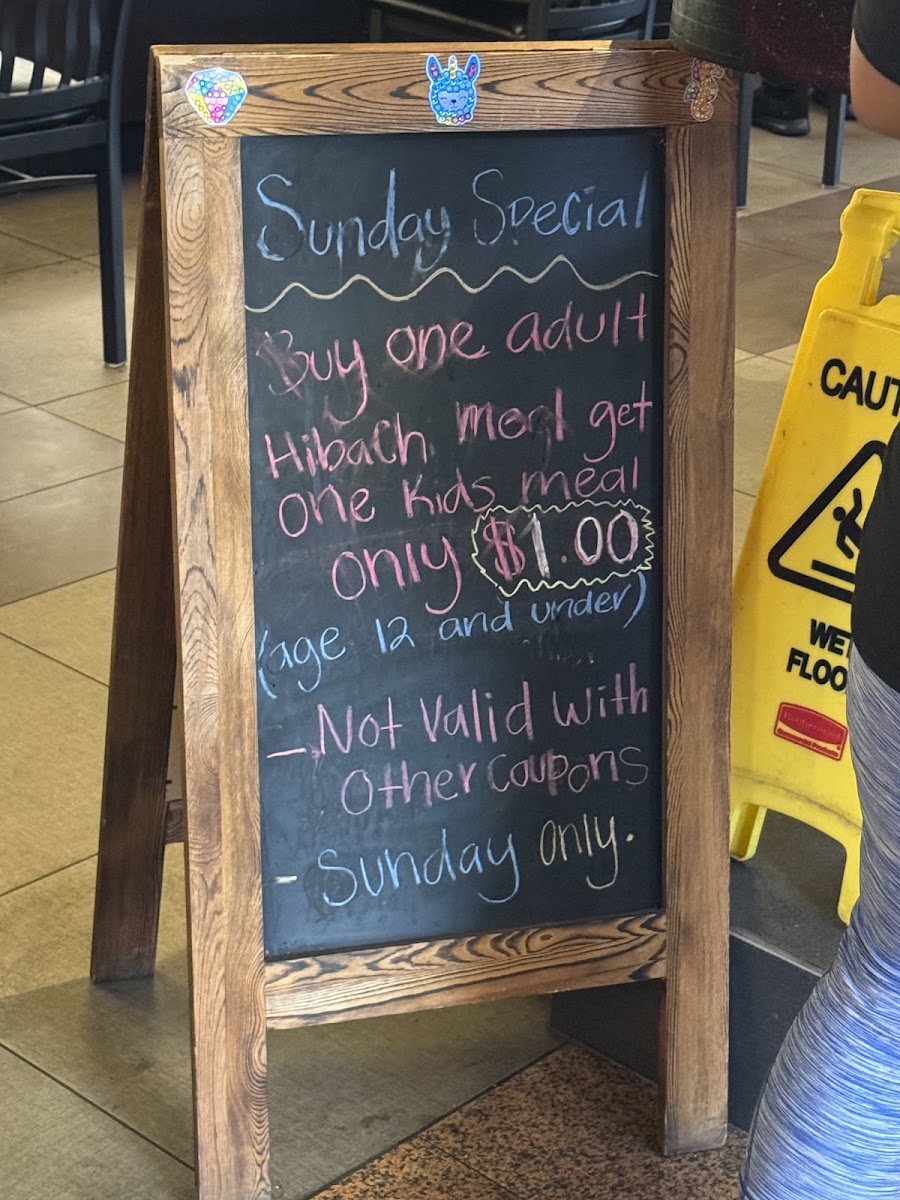 Sunday Special
Buy one adult
Hibachi meal get
one kids meal
only $1.00
(age 12 and under)
- Not Valid with
Other Coupons
- Sunday only.
CAUT
WET
FLOO